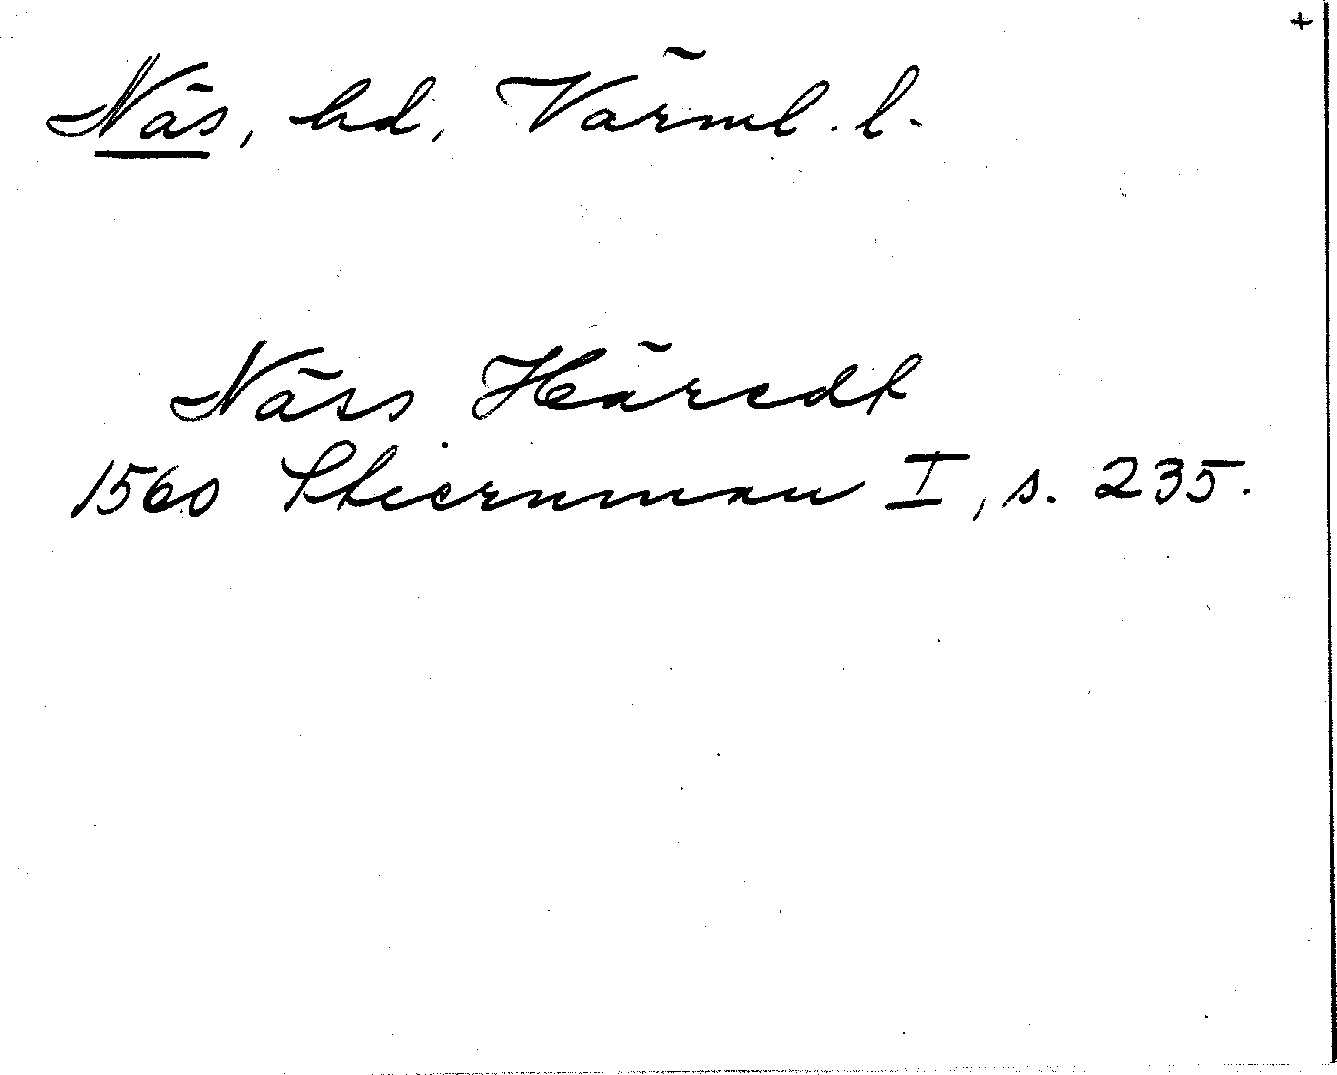 +
Näs, hd, Värml. l.
Näss Häredt
1560 Stiernman I, s. 235.